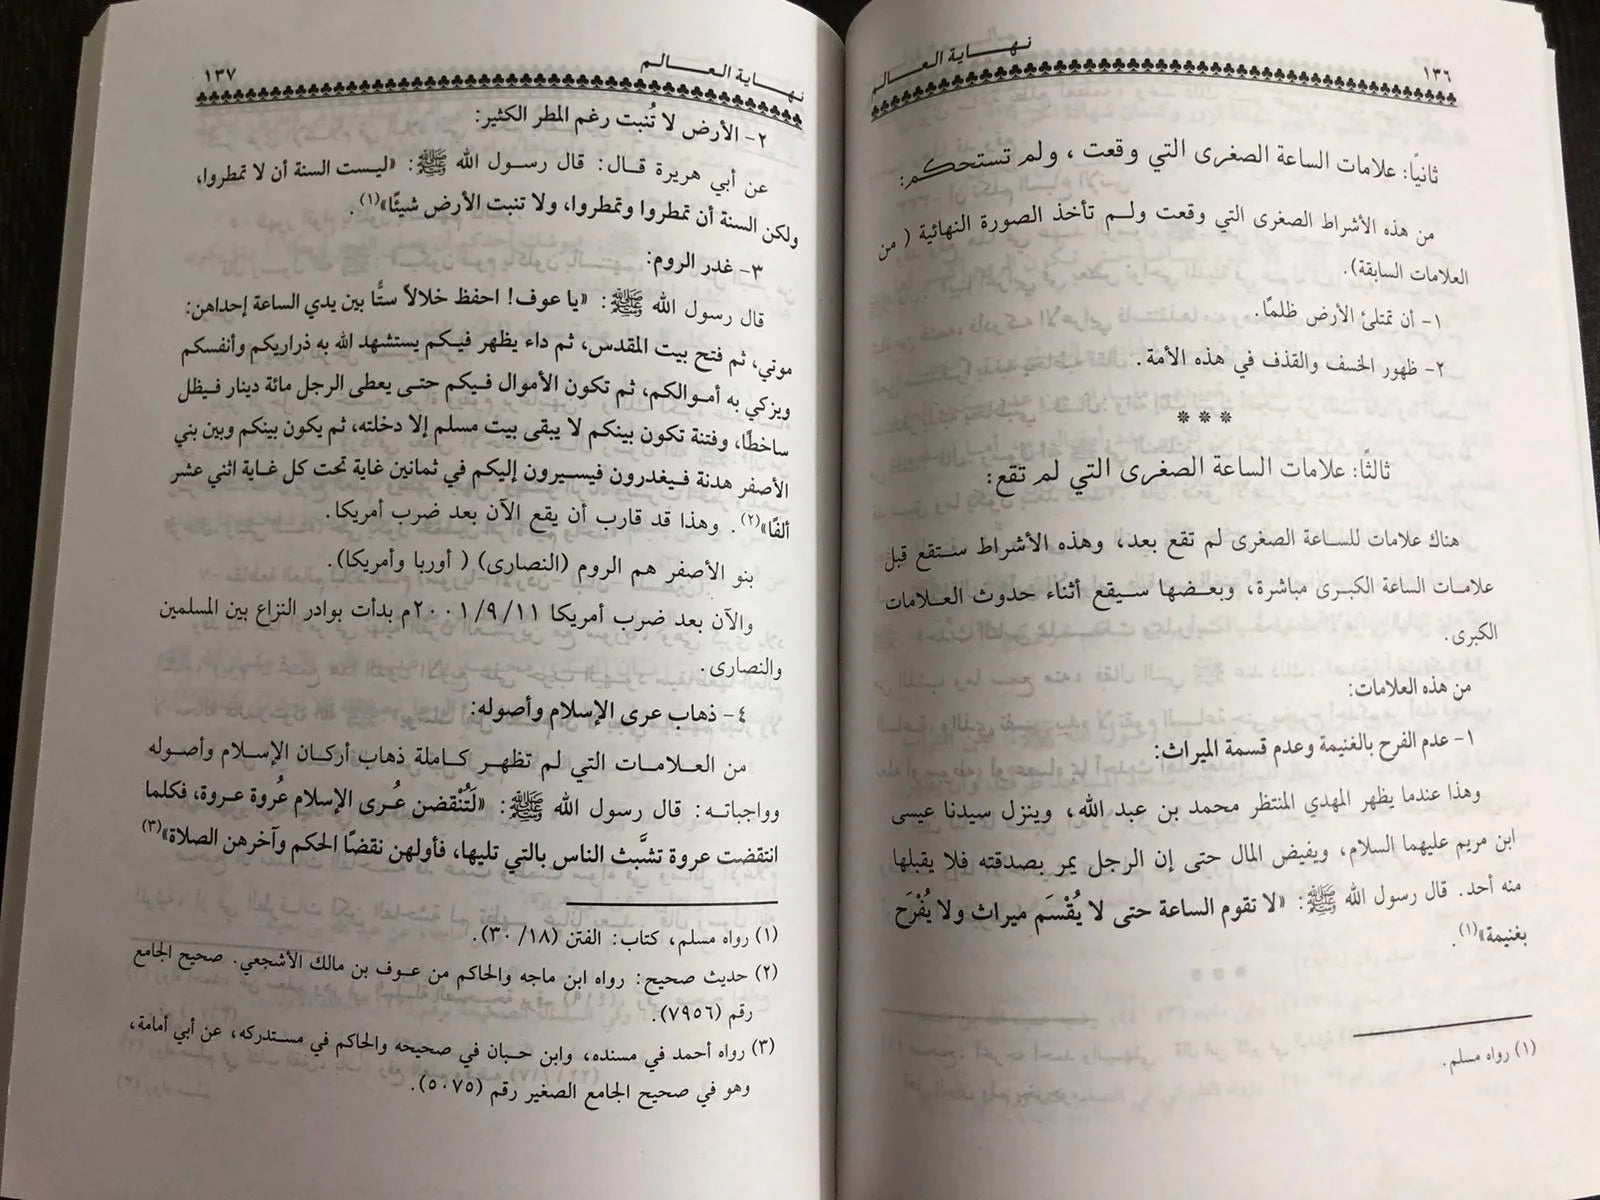 ١٣٦
نهاية العالم
ثانيًا: علامات الساعة الصغرى التي وقعت ، ولم تستحكم:
من هذه الأشراط الصغرى التي وقعت ولم تأخذ الصورة النهائية ( من
العلامات السابقة).
١- أن تمتلئ الأرض ظلمًا.
٢- ظهور الخسف والقذف في هذه الأمة.
***
ثالثًا: علامات الساعة الصغرى التي لم تقع:
هناك علامات للساعة الصغرى لم تقع بعد، وهذه الأشراط ستقع قبل
علامات الساعة الكبرى مباشرة، وبعضها سيقع أثناء حدوث العلامات
الكبرى.
من هذه العلامات:
١- عدم الفرح بالغنيمة وعدم قسمة الميراث:
وهذا عندما يظهر المهدي المنتظر محمد بن عبد الله، وينزل سيدنا عيسى
ابن مريم عليهما السلام، ويفيض المال حتى إن الرجل يمر بصدقته فلا يقبلها
منه أحد. قال رسول الله ﷺ: «لا تقوم الساعة حتى لا يُقْسَم ميراث ولا يُفْرَح
بغنيمة»(١).
(١) رواه مسلم.
نهاية العالم
١٣٧
٢- الأرض لا تُنبت رغم المطر الكثير:
عن أبي هريرة قال: قال رسول الله ﷺ: «ليست السنة أن لا تمطروا،
ولكن السنة أن تمطروا وتمطروا، ولا تنبت الأرض شيئًا»(١).
٣- غدر الروم:
قال رسول الله ﷺ: «يا عوف! احفظ خلالاً ستًّا بين يدي الساعة إحداهن:
موتي، ثم فتح بيت المقدس، ثم داء يظهر فيكم يستشهد الله به ذراريكم وأنفسكم
ويزكي به أموالكم، ثم تكون الأموال فيكم حتى يعطى الرجل مائة دينار فيظل
ساخطًا، وفتنة تكون بينكم لا يبقى بيت مسلم إلا دخلته، ثم يكون بينكم وبين بني
الأصفر هدنة فيغدرون فيسيرون إليكم في ثمانين غاية تحت كل غاية اثني عشر
ألفًا»(٢). وهذا قد قارب أن يقع الآن بعد ضرب أمريكا.
بنو الأصفر هم الروم (النصارى) ( أوربا وأمريكا).
والآن بعد ضرب أمريكا ٢٠٠١/٩/١١م بدأت بوادر النزاع بين المسلمين
والنصارى.
٤- ذهاب عرى الإسلام وأصوله:
من العلامات التي لم تظهر كاملة ذهاب أركان الإسلام وأصوله
وواجباته: قال رسول الله ﷺ: «لَتُنْقضن عُرى الإسلام عُروة عروة، فكلما
انتقضت عروة تشَّبث الناس بالتي تليها، فأولهن نقضًا الحكم وآخرهن الصلاة»(٣)
(١) رواه مسلم، كتاب: الفتن (٣٠/١٨).
(٢) حديث صحيح: رواه ابن ماجه والحاكم من عوف بن مالك الأشجعي. صحيح الجامع
رقم (٧٩٥٦).
(٣) رواه أحمد في مسنده، وابن حبان في صحيحه والحاكم في مستدركه، عن أبي أمامة،
وهو في صحيح الجامع الصغير رقم (٥٠٧٥).